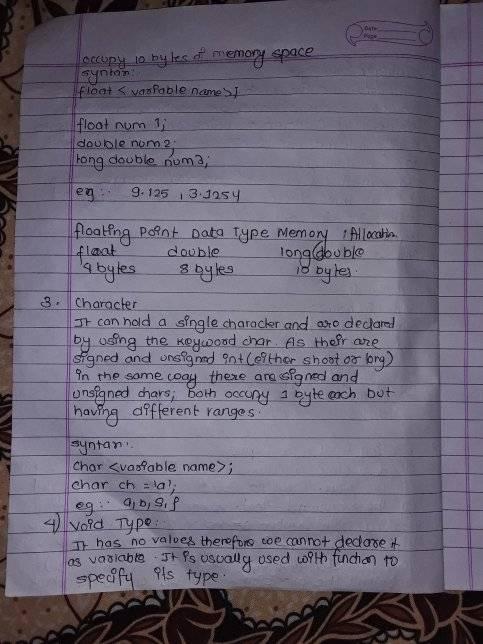 Date
Page
occupy 10 bytes of memory space
syntax:
float <variable name>;
float num 1;
double num2;
long double num3;
eg :- 9.125 , 3.1254
floating Point Data Type Memory Allocation
float double long double
4 bytes 8 bytes 10 bytes.
3. Character
It can hold a single character and are declared
by using the keyword char. As their are
signed and unsigned int (either short or long)
in the same way there are signed and
unsigned chars; both occupy 1 byte each but
having different ranges.
syntax:.
char <variable name>;
char ch = 'a';
eg :- a, b, g, f
4) Void Type:
It has no values therefore we cannot declare it
as variable. It is usually used with function to
specify its type.